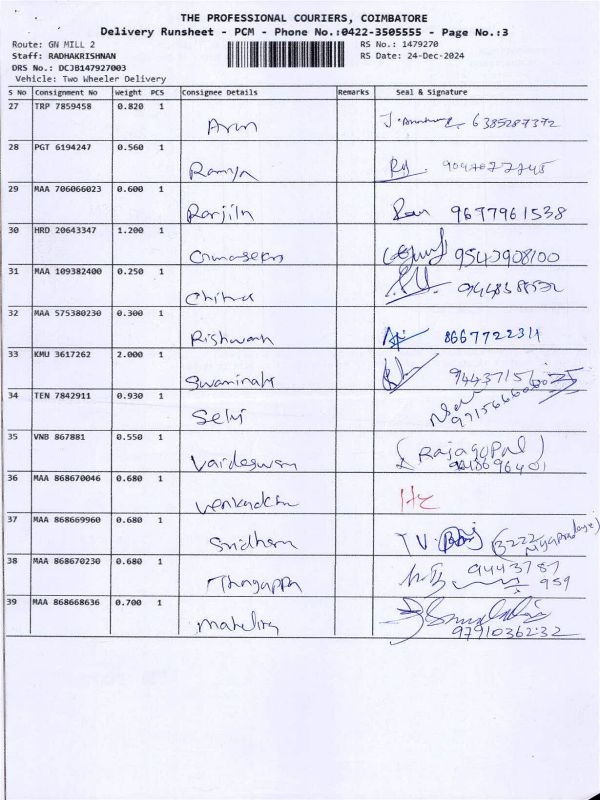 THE PROFESSIONAL COURIERS, COIMBATORE
Delivery Runsheet - PCM - Phone No.:0422-3505555 - Page No.:3
Route: GN MILL 2 RS No.: 1479270
Staff: RADHAKRISHNAN RS Date: 24-Dec-2024
DRS No.: DCJB147927003
Vehicle: Two Wheeler Delivery
S No Consignment No Weight PCS Consignee Details Remarks Seal & Signature
27 TRP 7859458 0.820 1
Arun 6385287372
28 PGT 6194247 0.560 1
Ramya
29 MAA 706066023 0.600 1
Ranjith 9677961538
30 HRD 20643347 1.200 1
Gunasekar
31 MAA 109382400 0.250 1
Chitra
32 MAA 575380230 0.300 1
Rishwanth 8667722311
33 KMU 3617262 2.000 1
Swaminath
34 TEN 7842911 0.930 1
Selvi
35 VNB 867881 0.550 1
Vaideswaran (Rajagopal)
36 MAA 868670046 0.680 1
Venkadesh
37 MAA 868669960 0.680 1
Sridharan TV.
38 MAA 868670230 0.680 1
Thangappa 9443787
959
39 MAA 868668636 0.700 1
9791036232